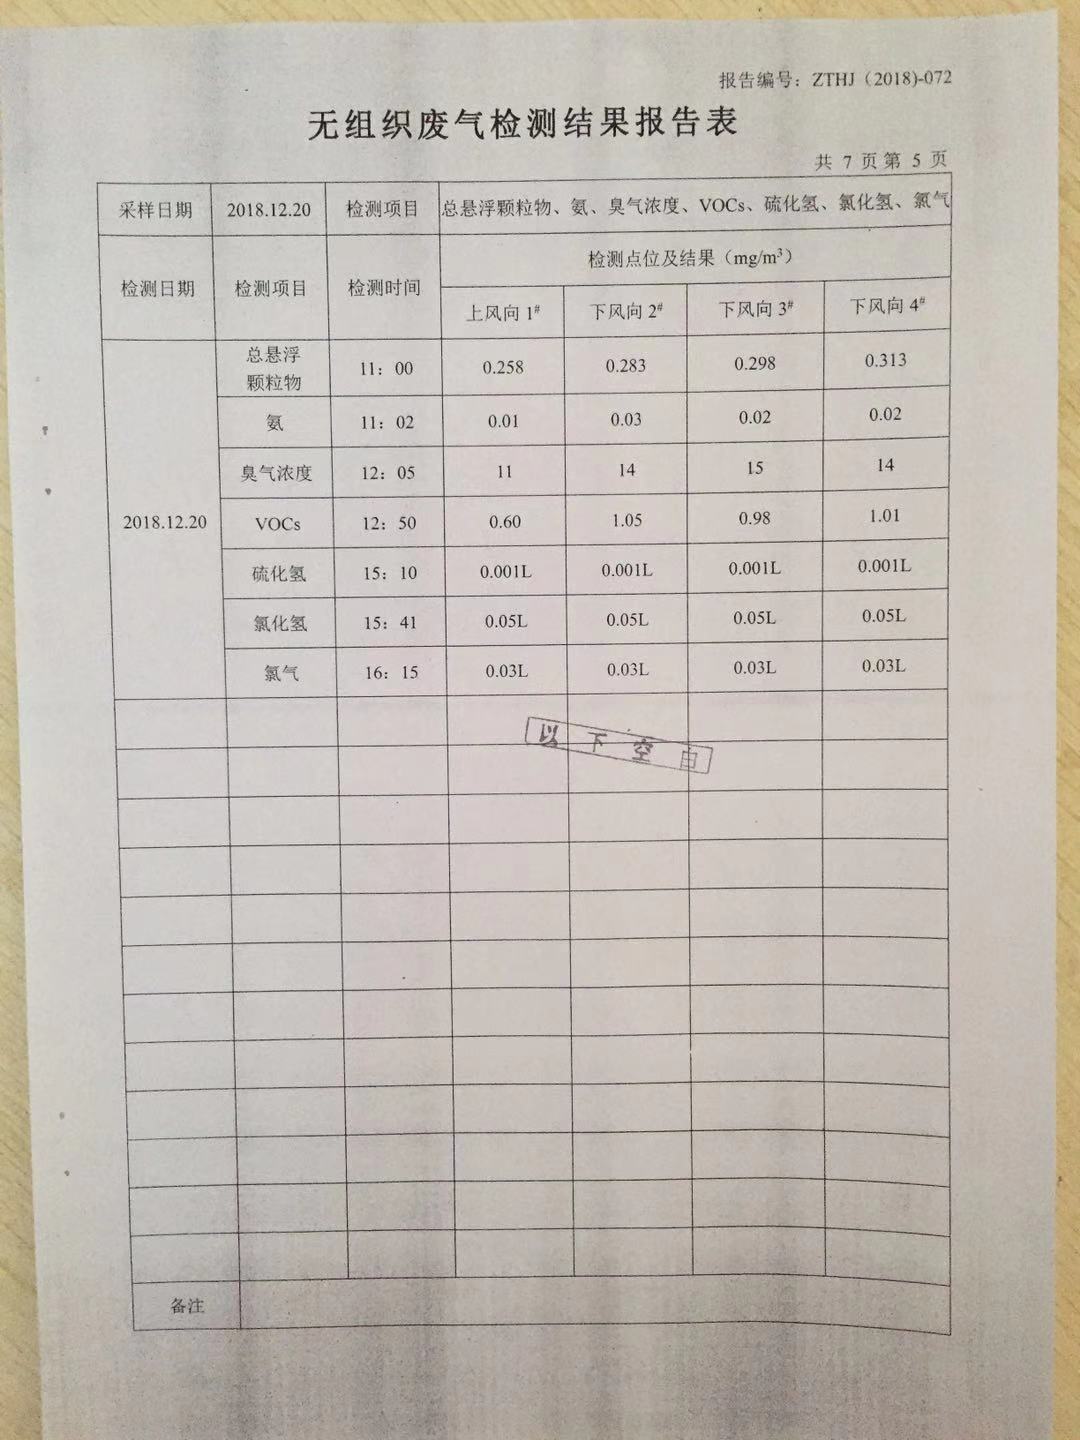 报告编号：ZTHJ（2018)-072
无组织废气检测结果报告表
共 7 页 第 5 页
采样日期 2018.12.20 检测项目 总悬浮颗粒物、氨、臭气浓度、VOCs、硫化氢、氯化氢、氯气
检测日期 检测项目 检测时间 检测点位及结果（mg/m³）
上风向 1# 下风向 2# 下风向 3# 下风向 4#
2018.12.20
总悬浮
颗粒物 11：00 0.258 0.283 0.298 0.313
氨 11：02 0.01 0.03 0.02 0.02
臭气浓度 12：05 11 14 15 14
VOCs 12：50 0.60 1.05 0.98 1.01
硫化氢 15：10 0.001L 0.001L 0.001L 0.001L
氯化氢 15：41 0.05L 0.05L 0.05L 0.05L
氯气 16：15 0.03L 0.03L 0.03L 0.03L
以下空白
备注